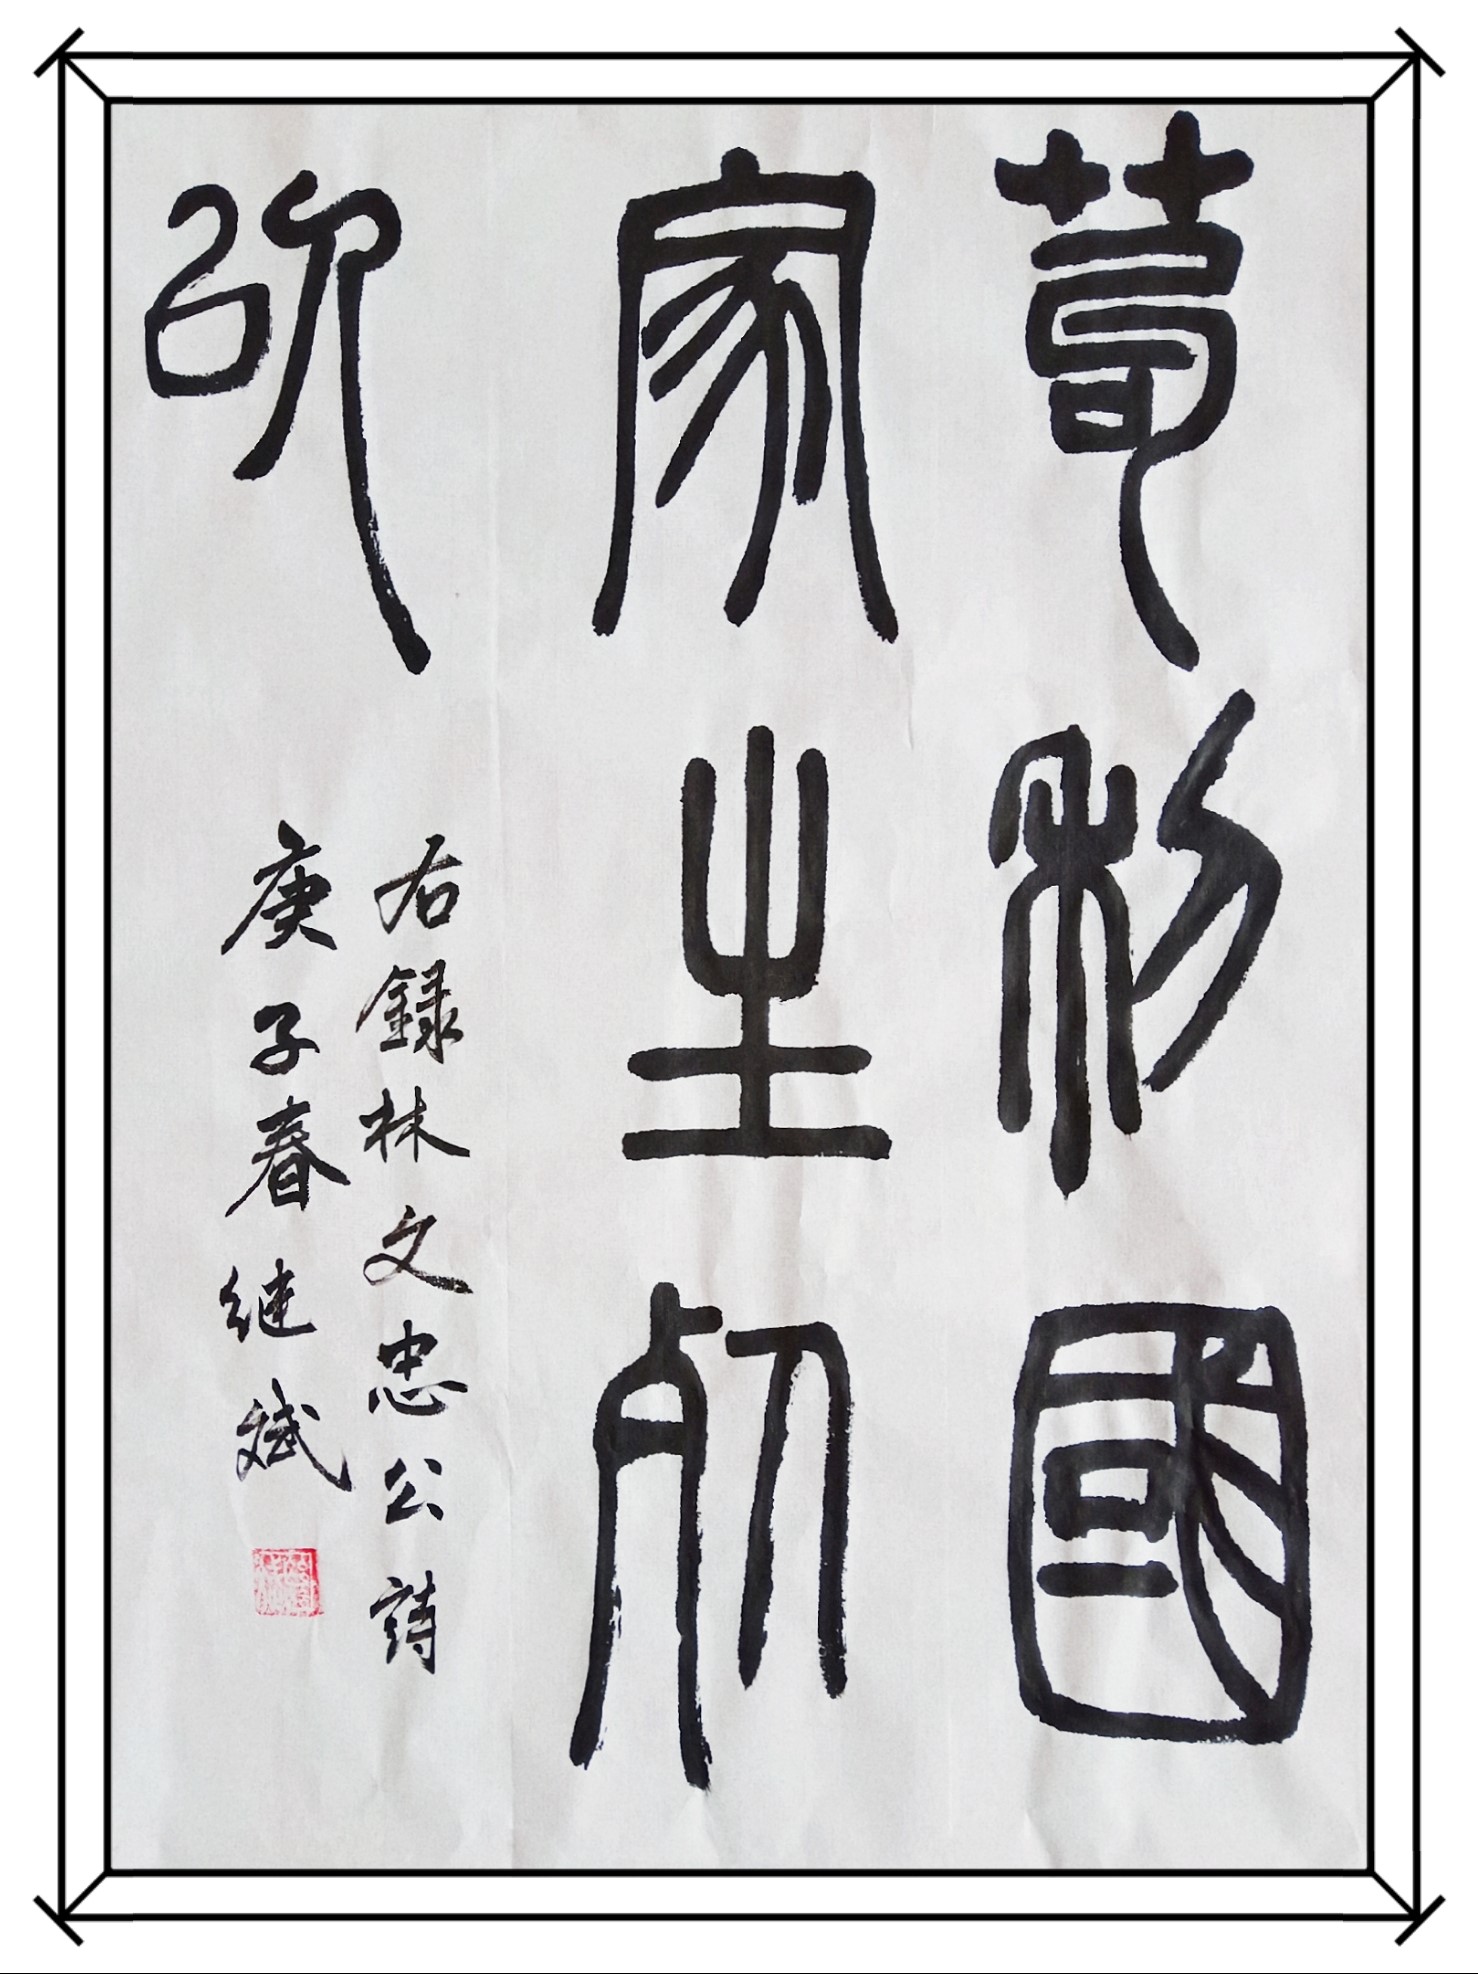 苟利國
家生死
以
右録林文忠公詩
庚子春继斌